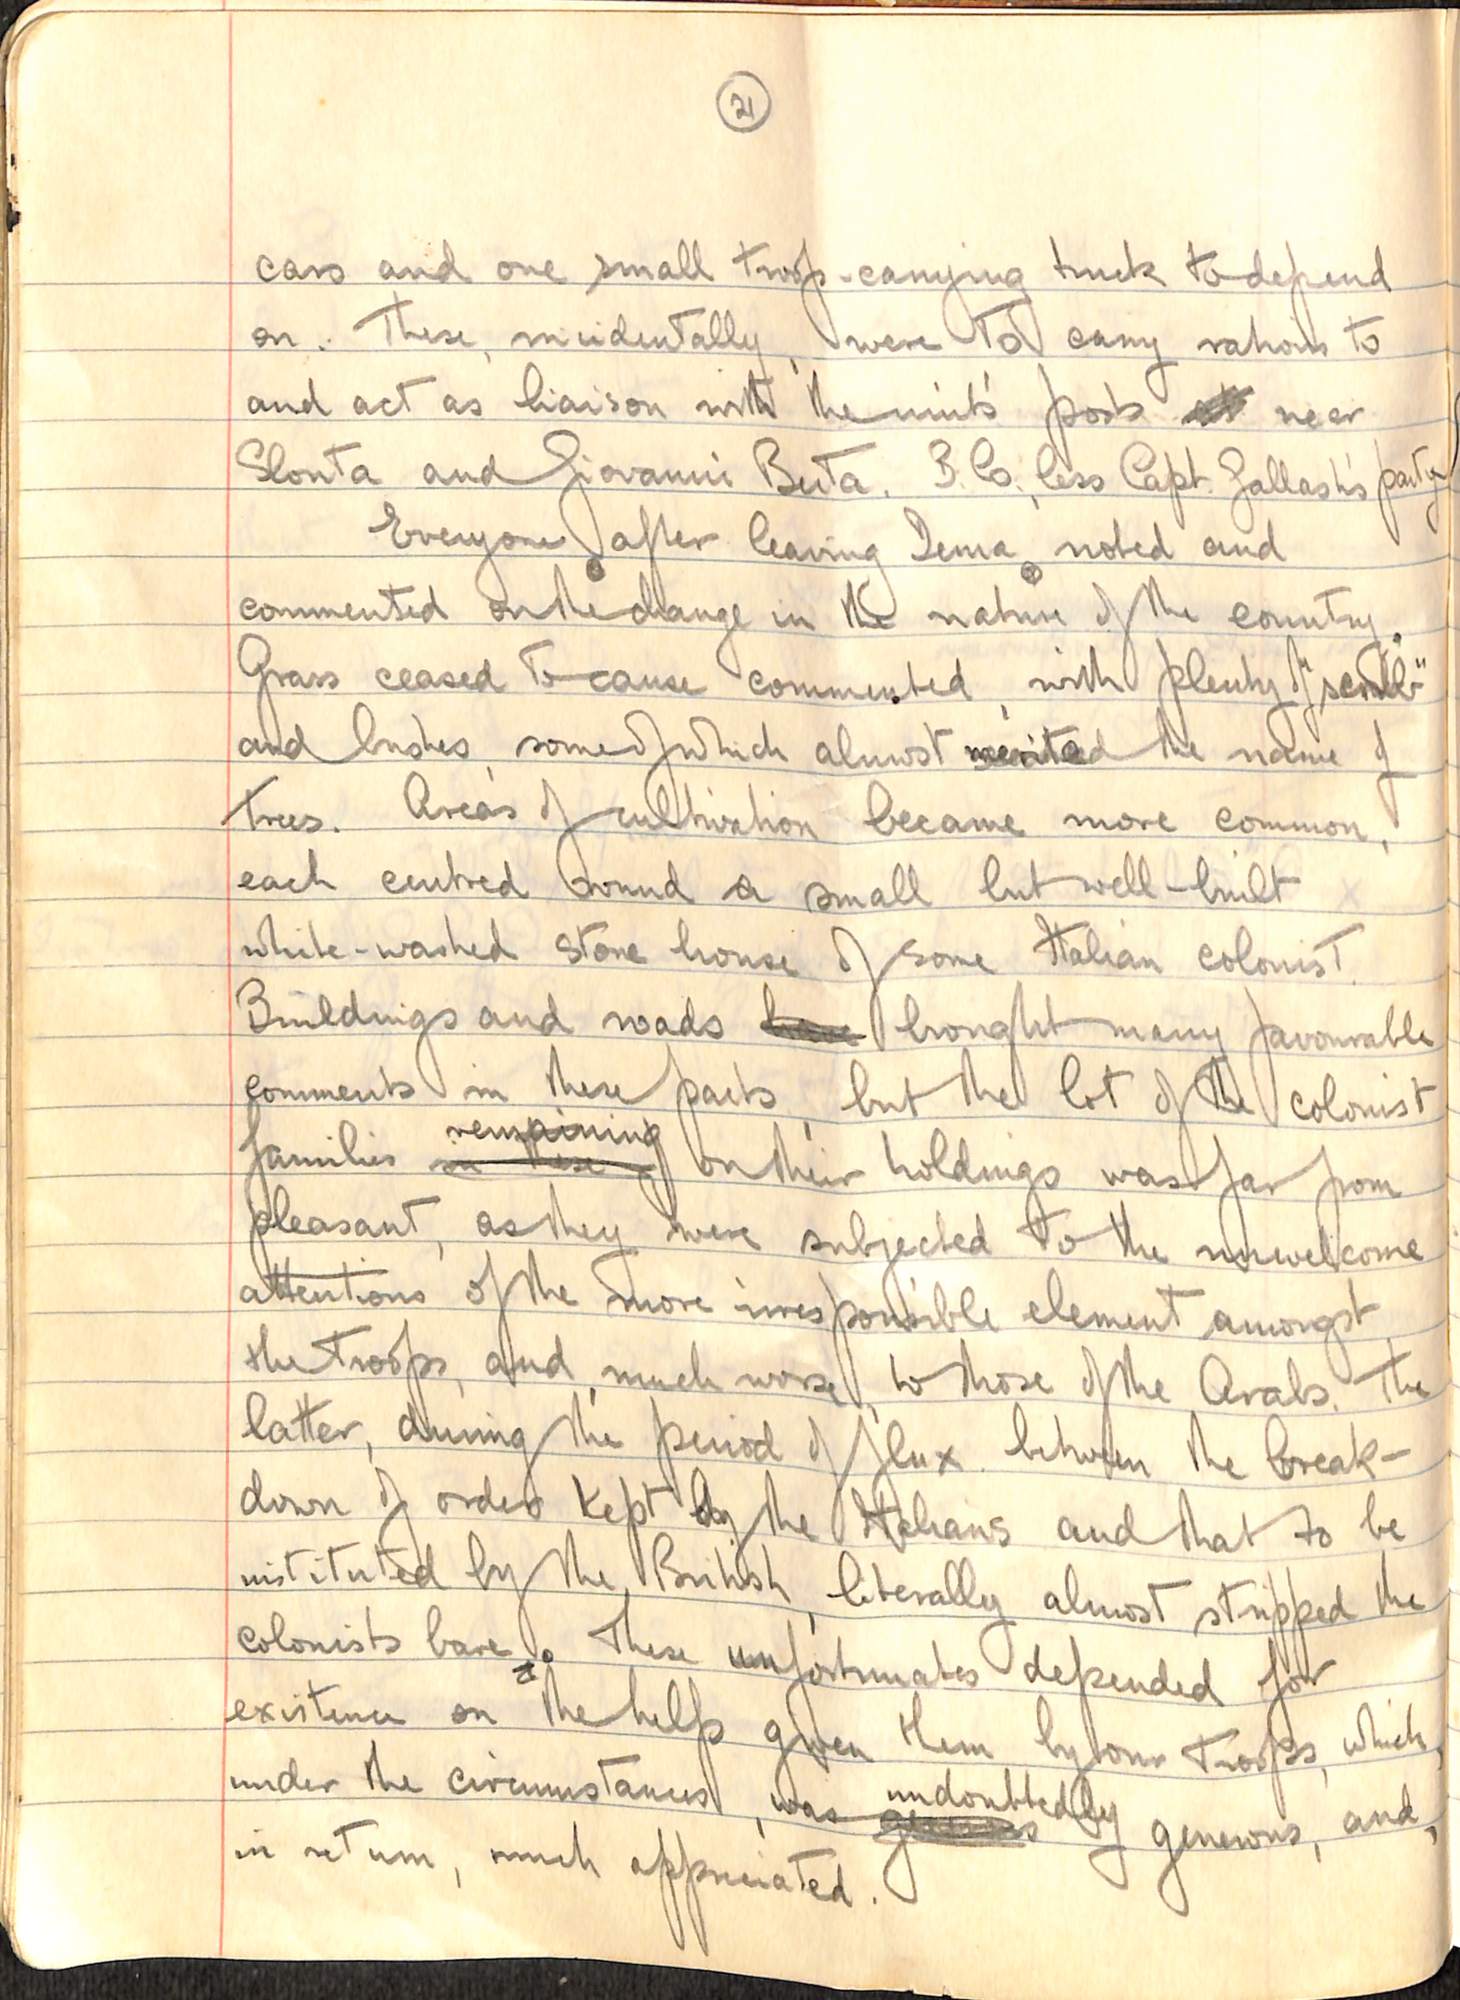 21
cars and one small troop-carrying truck to depend
on. These, incidentally, were to carry rations to
and act as liaison with the unit's posts near
Slonta and Giovanni Berta. B. Co., less Capt. Gallash's party
Everyone, after leaving Derna, noted and
commented on the change in the nature of the country.
Grass ceased to cause commented, with plenty of "scrub"
and bushes, some of which almost merited the name of
trees. Areas of cultivation became more common,
each centred round a small but well-built
white-washed stone house of some Italian colonist.
Buildings and roads have brought many favourable
comments in these parts, but the lot of the colonist
remaining
families in these on their holdings was far from
pleasant, as they were subjected to the unwelcome
attentions of the more irresponsible element amongst
the troops, and, much worse, to those of the Arabs. The
latter, during the period of flux between the break-
down of order kept by the Italians and that to be
instituted by the British, literally almost stripped the
colonists bare. These unfortunates depended for
existence on the help given them by our troops, which,
undoubtedly
under the circumstances, was generous, and,
in return, much appreciated.